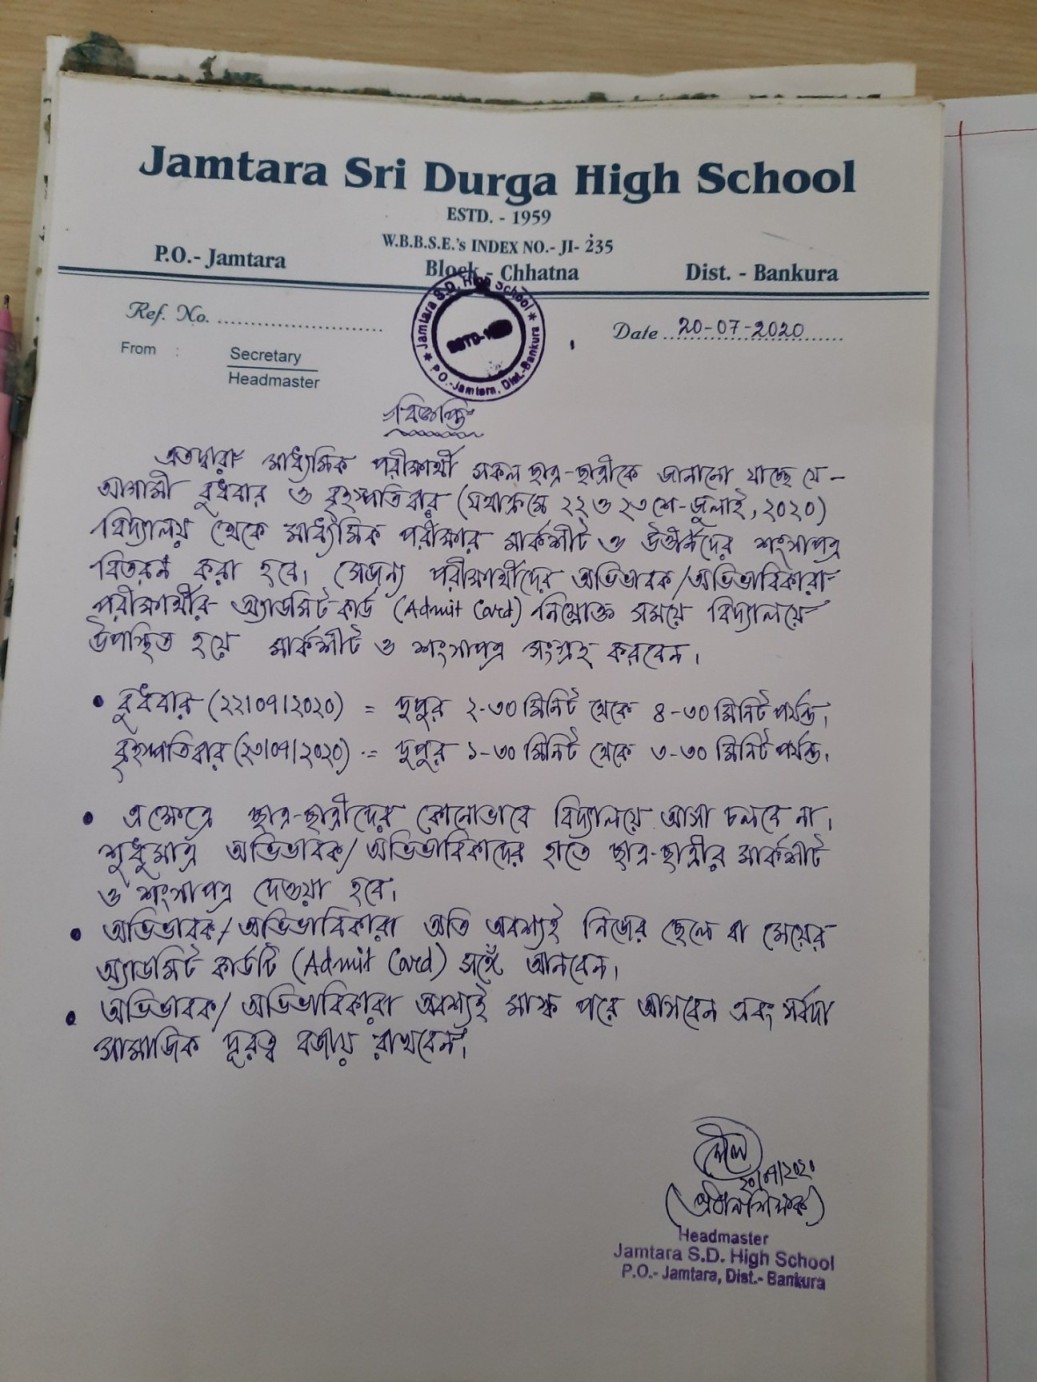 Jamtara Sri Durga High School
ESTD. - 1959
W.B.B.S.E.'s INDEX NO.- JI- 235
P.O.- Jamtara Block - Chhatna Dist. - Bankura
Ref. No. ..............................
Date ..20-07-2020..
From : Secretary
Headmaster
Jamtara S.D. High School
P.O.-Jamtara, Dist.-Bankura
বিজ্ঞপ্তি
এতদ্বারা মাধ্যমিক পরীক্ষার্থী সকল ছাত্র-ছাত্রীকে জানানো যাচ্ছে যে -
আগামী বুধবার ও বৃহস্পতিবার (যথাক্রমে ২২ ও ২৩শে-জুলাই, ২০২০)
বিদ্যালয় থেকে মাধ্যমিক পরীক্ষার মার্কশীট ও উত্তীর্ণদের শংসাপত্র
বিতরণ করা হবে। সেজন্য পরীক্ষার্থীদের অভিভাবক/অভিভাবিকারা
পরীক্ষার্থীর অ্যাডমিট কার্ড (Admit Card) নিম্নোক্ত সময়ে বিদ্যালয়ে
উপস্থিত হয়ে মার্কশীট ও শংসাপত্র সংগ্রহ করবেন।
• বুধবার (২২/০৭/২০২০) = দুপুর ২-৩০ মিনিট থেকে ৪-৩০ মিনিট পর্যন্ত।
বৃহস্পতিবার (২৩/০৭/২০২০) = দুপুর ১-৩০ মিনিট থেকে ৩-৩০ মিনিট পর্যন্ত।
• এক্ষেত্রে ছাত্র-ছাত্রীদের কোনোভাবে বিদ্যালয়ে আসা চলবে না।
শুধুমাত্র অভিভাবক/অভিভাবিকাদের হাতে ছাত্র-ছাত্রীর মার্কশীট
ও শংসাপত্র দেওয়া হবে।
• অভিভাবক/অভিভাবিকারা অতি অবশ্যই নিজের ছেলে বা মেয়ের
অ্যাডমিট কার্ডটি (Admit Card) সঙ্গে আনবেন।
• অভিভাবক/অভিভাবিকারা অবশ্যই মাস্ক পরে আসবেন এবং সর্বদা
সামাজিক দূরত্ব বজায় রাখবেন।
২০/০৭/২০২০
(প্রধানশিক্ষক)
Headmaster
Jamtara S.D. High School
P.O.- Jamtara, Dist.- Bankura